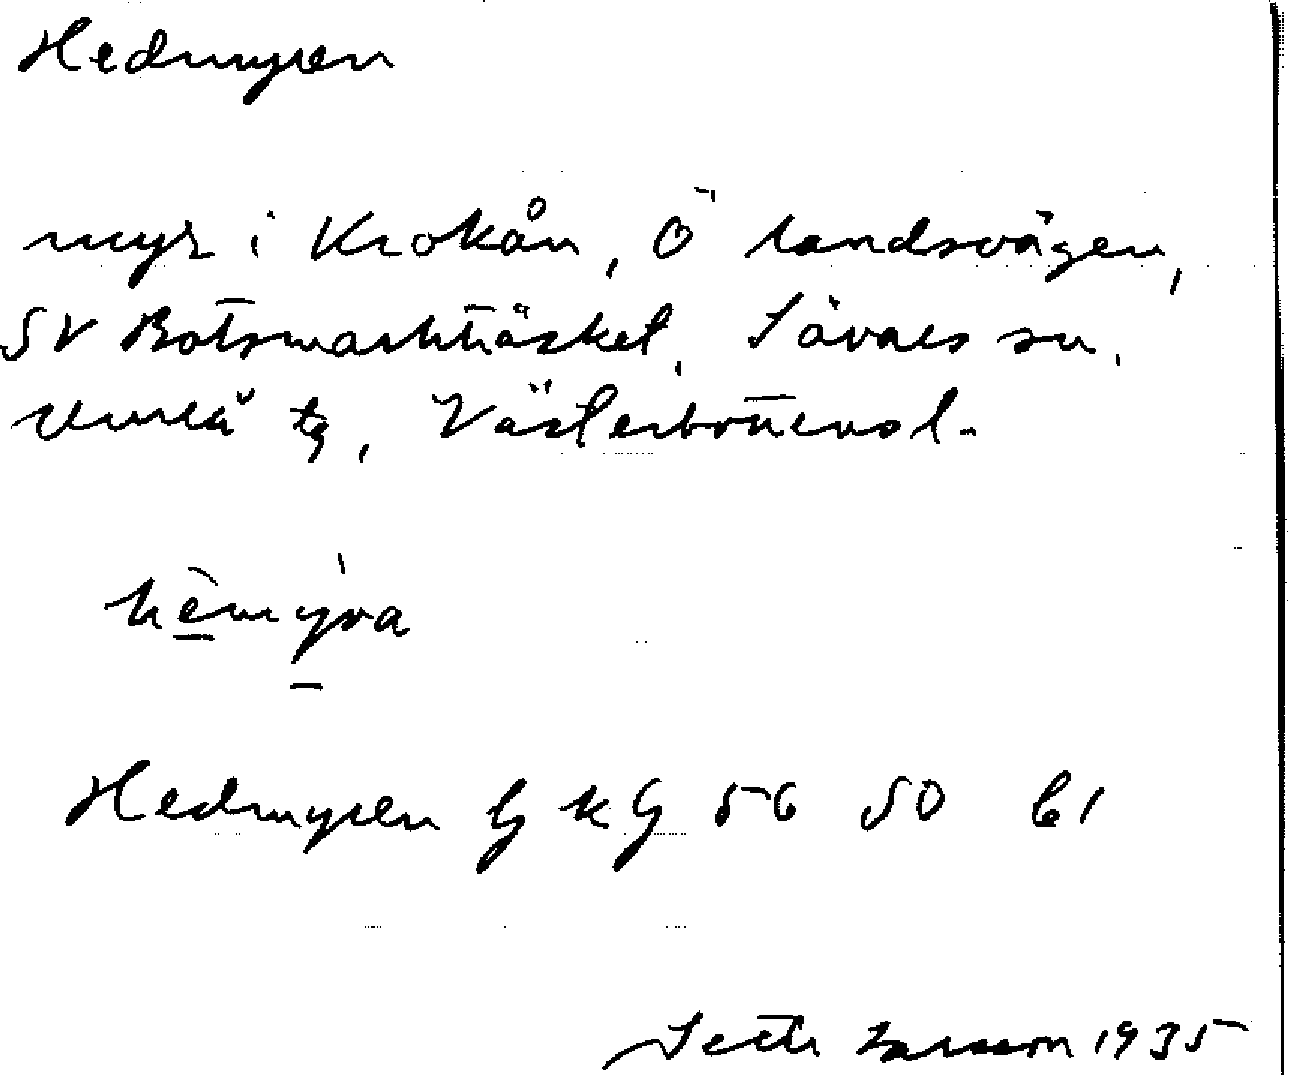 Hedmyren
myr i Krokån, Ö landsvägen,
SV Botsmarkträsket, Sävars sn,
Umeå tg, Västerbottensl.
hèmýra
Hedmyren G k G 56 50 61
Seth Larsson 1935